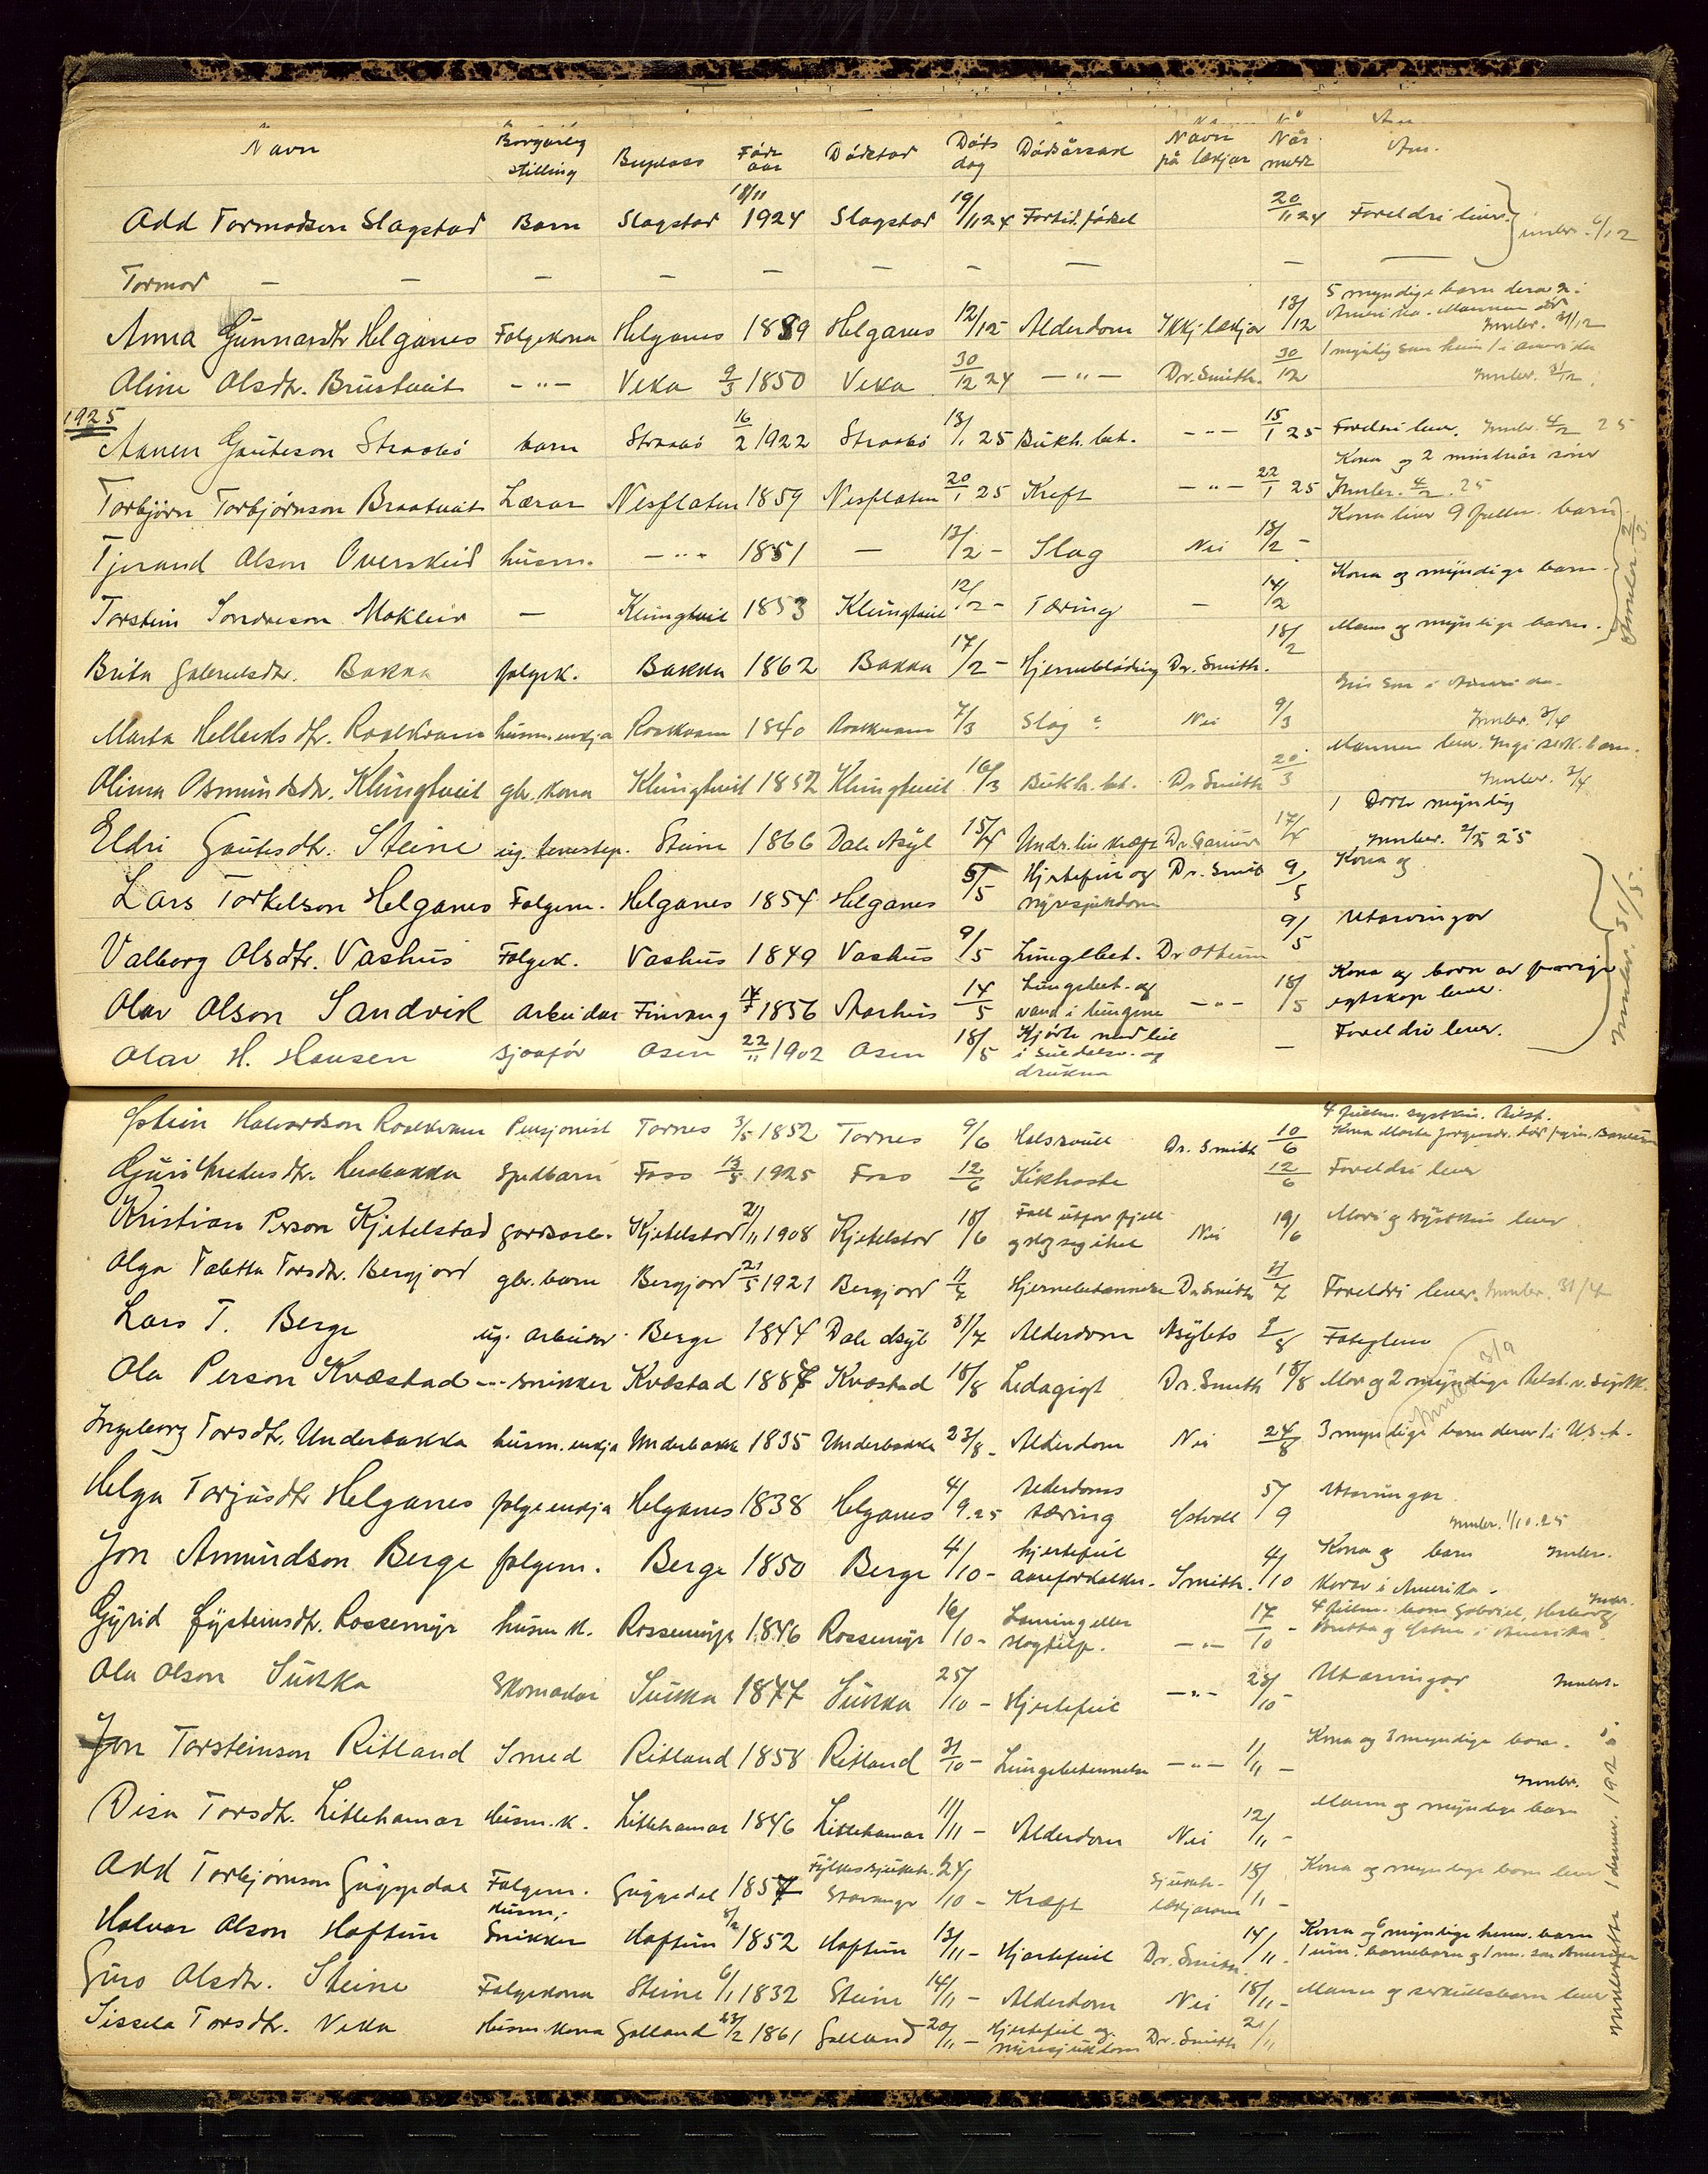 Navn Borgarleg stilling Buplass Føde aar Dødstad Døds dag Dødsårsak Navn på lækjar Når meldt Am.
Add Tormodson Slagstad Barn Slagstad 18/11 1924 Slagstad 19/11 24 Fortid. fødsel 20/11 24 Foreldri liver. 6/12
Tormod — — — — — — — — —
Anna Gunnarsdtr Helganes Folgekona Helganes 1839 Helganes 12/12 Alderdom Ikkj lækjar 13/12 5 myndige barn derav 2 i Amerika. Mannen død
Innber. 31/12
Oline Olsdtr. Brustveit -"- Veka 9/3 1850 Veka 30/12 24 -"- Dr. Smith. 30/12 1 myndig son heim 1 i Amerika
Innber. 31/12.
1925
Aanen Gauteson Straabø barn Straabø 16/2 1922 Straabø 13/1 25 Bukh. bet. -"- 15/1 25 Foreldri lever. Innber. 4/2 25
Torbjörn Torbjörnson Braatveit Lærar Nesflaten 1859 Nesflaten 20/1 25 Kreft -"- 22/1 25 Kona og 2 mindriår søner
Innber. 4/2. 25
Tjerand Olson Overskeid husm. -"- 1851 — 13/2 - Slag Nei 13/2 - Kona liver 9 fullm. barn
Torstein Sondreson Mokleiv — Klungtveit 1853 Klungtveit 12/2 - Tæring - 14/2 Kona og myndige barn.
Brita Gabrielsdtr. Bakka folgek. Bakka 1862 Bakka 17/2 - Hjerneblöding Dr. Smith. 18/2 Mann og myndige barn.
Innber. 2/3.
Marta Helleiksdtr. Roaldkvam husm. enkja Roalkvam 1840 Roalkvam 7/3 Slag ? Nei 9/3 Ein son i Amerika.
Innber. 3/4
Olina Osmundsdtr. Klungtveit gbr. kona Klungtveit 1852 Klungtveit 16/3 Bukh. bet. Dr Smith 20/3 Mannen lever. Ingi serk. barn.
Innber. 3/4
Eldri Gautesdtr. Steine ug. tenestep. Steine 1866 Dale Asyl 15/4 Underlivskræft 17/4 1 Dotter myndig
Innber. 2/5 25
Lars Torkelson Helganes Folgem. Helganes 1854 Helganes 5/5 Hjertefeil og nyresjukdom Dr. Smith 9/5 Kona og
Valborg Olsdtr. Vashus Folgek. Vashus 1849 Vashus 9/5 Lungebet. 9/5 Utarvingar
Olav Olson Sandvik Arbeidar 1856 14/5 Lungebet. og vand i lungene -"- 18/5 Kona og born av forrige egtskap lever.
Olav H. Hansen sjoafør Osen 22/11 1902 Osen 18/5 Kjörte ned bil i Suldalsv. og drukna — Foreldri lever.
Innber. 31/5.
Østein Halvardson Roalkvam Pensjonist Tornes 3/5 1852 Tornes 9/6 Dr. Smith 10/6 4 fullm. syskin.
Guri Herabakka Spedbarn Foss 13/5 1925 Foss 12/6 Kikhoste 12/6 Foreldri lever
Kristian Person Kjetelstad gardsarb. Kjetelstad 2/11 1908 Kjetelstad 18/6 Fall utfor fjell og slog seg ihel Nei 19/6 Mori og syskin lever
Olga Tabetta Torsdtr. Bergjord gbr. barn Bergjord 21/5 1921 Bergjord 11/7 Hjernebetennelse Dr Smith 11/7 Foreldri lever. Innber.
Lars T. Berge ug. arbeidar Berge 1844 Dale Asyl 31/7 Alderdom Asylets 1/8
Ola Person Kvæstad -"- snikker Kvæstad 1887 Kvæstad 18/8 Ledagigt Dr. Smith 18/8 Mor og 2 myndige
Innber. 3/9
Ingeborg Torsdtr. Underbakka husm. enkja Underbakka 1835 Underbakka 23/8 - Alderdom Nei 24/8 3 myndige barn derav 1 i U.S.A.
Helga Torjusdtr Helganes folgeenkja Helganes 1838 Helganes 4/9.25 Alderdoms tæring 5/9 Utarvingar
Innber. 1/10.25
Jon Amundson Berge folgem. Berge 1850 Berge 4/10 - hjertefeil aareforkalkn. Smith. 4/10 Kona og barn Innber.
Gyrid Eysteinsdtr. Rossemyr husm k. Rossemyr 1846 Rossemyr 16/10 - Laming eller slagtilf. -"- 17/10 - 4 fullm. barn Gabriel, Herborg
Ola Olson Sukka Skomakar Sukka 1847 Sukka 25/10 - Hjertefeil -"- 28/10 - Utarvingar Innber.
Jon Torsteinson Ritland Smed Ritland 1858 Ritland 31/10 - Lungebetennelse -"- 1/11 - Kona og 3 myndige barn.
Innber.
Disa Torsdtr. Littlehamar Husm. k. Littlehamar 1846 Littlehamar 11/11 - Alderdom Nei 12/11 - Mann og myndige barn
Add Torbjörnson Guggedal Folgem. Guggedal 1857 Fylkessjukeh. Stavanger 24/10 - Kræft Sjukeh. lækjaren Kona og myndige barn lever
Halvar Olson Hoftun Husm, Snikker Hoftun 8/2 1852 Hoftun 13/11 - Hjertefeil Dr. Smith. 14/11 - Kona og 6 myndige heim. barn
Guro Olsdtr. Steine Folgekona Steine 6/1 1832 Steine 14/11 - Alderdom Nei 18/11 - Mann og serkullsbarn lever
Sissela Torsdtr. Veka Husm. kona Galland 23/2 1861 Galland 20/11 - Hjertefeil og nyresjukdom Dr. Smith 21/11